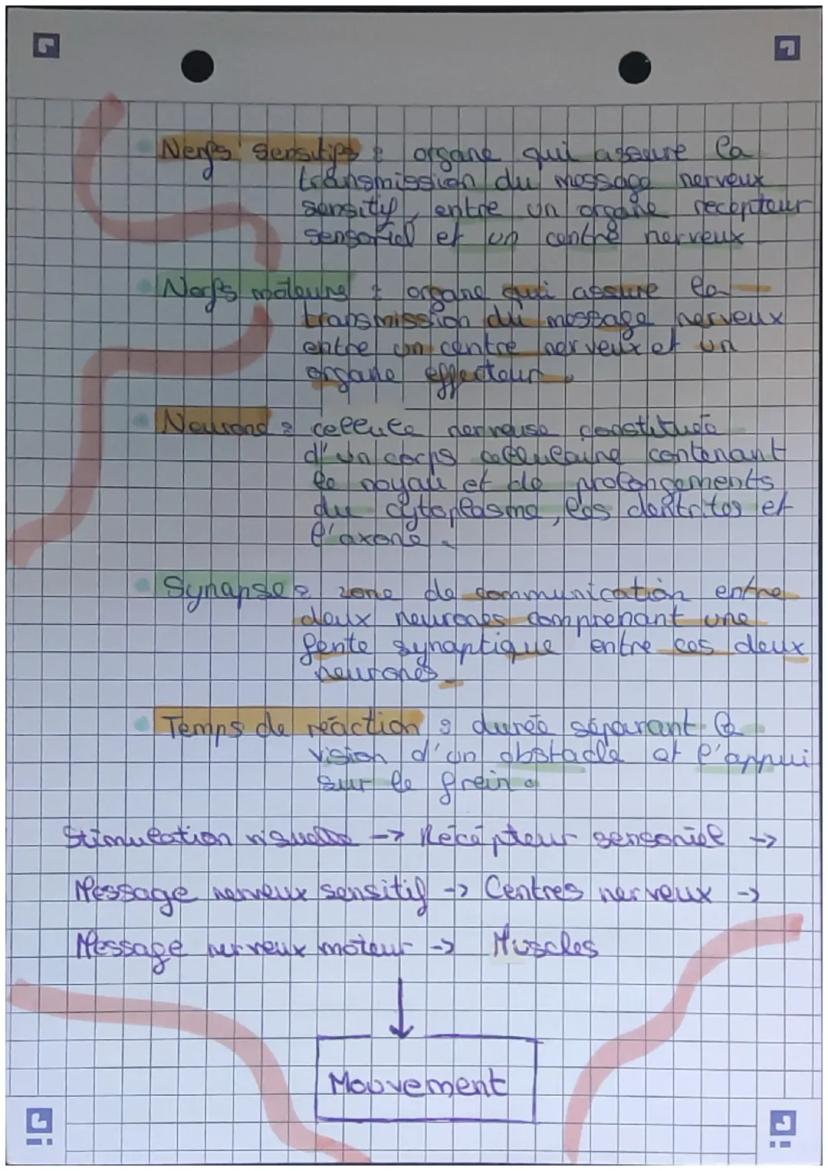 Nerfs sensitifs : organe qui assure la
transmission du message nerveux
sensitif, entre un organe recepteur
sensoriel et un centre nerveux
Nerfs moteurs : organe qui assure la
transmission du message nerveux
entre un centre nerveux et un
organe effecteur.
Neurone : cellule nerveuse constituée
d'un corps cellulaire contenant
le noyau et de prolongements
du cytoplasme, les dentrites et
l'axone.
Synapse : zone de communication entre
deux neurones comprenant une
fente synaptique entre ces deux
neurones
Temps de réaction : durée séparant la
vision d'un obstacle et l'appui
sur le frein.
Stimulation visuelle -> Récépteur sensoriel ->
Message nerveux sensitif -> Centres nerveux ->
Message nerveux moteur -> Muscles
Mouvement